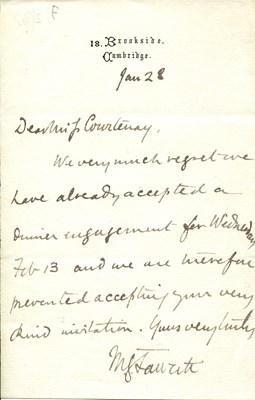 F
18. Brookside,
Cambridge.
Jan 28
Dear Miss Courtenay,
We very much regret we
have already accepted a
dinner engagement for Wednesday
Feb 13 and we are therefore
prevented accepting your very
kind invitation. Yours very truly
M G Fawcett